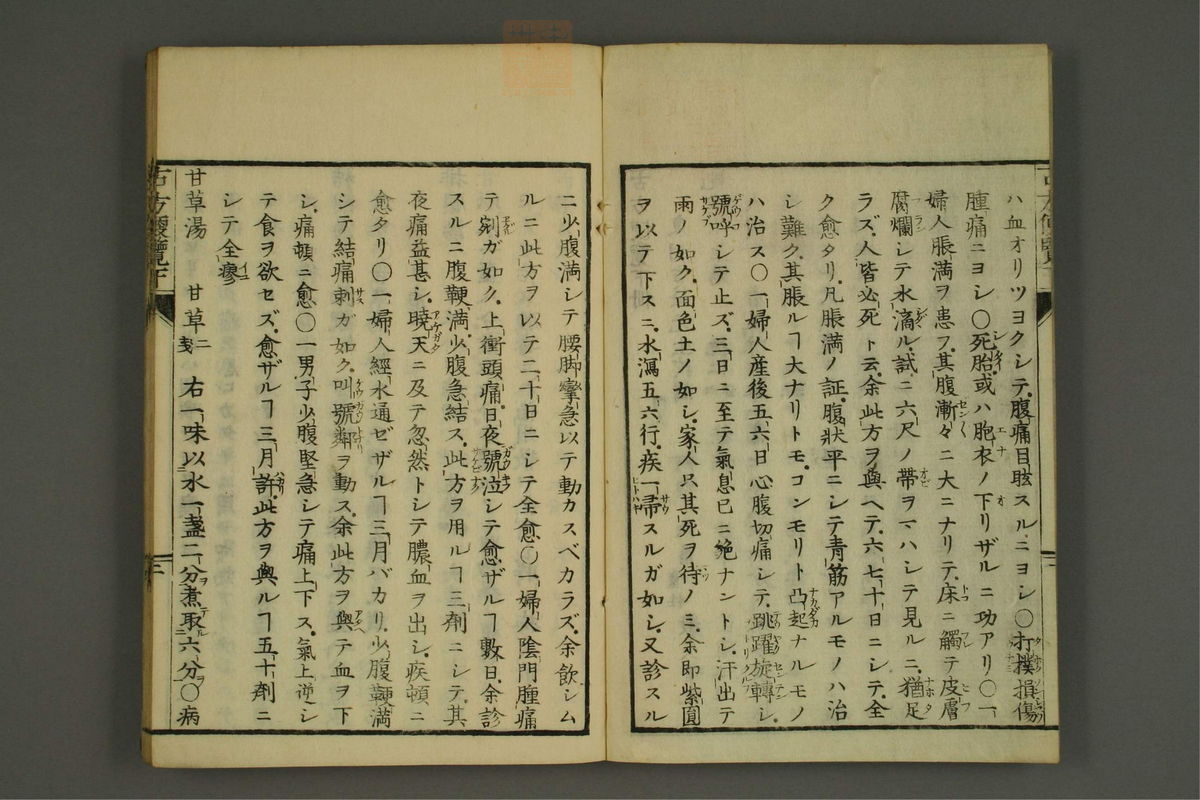 ハ血オリツヨクシテ腹痛目眩スルニヨシ〇打撲損傷
腫痛ニヨシ〇死胎或ハ胞衣ノ下リザルニ功アリ〇一
婦人脹満ヲ患フ其腹漸々ニ大ニナリテ床ニ觸テ皮膚
腐爛シテ水滴ル試ニ六尺ノ帶ヲマハシテ見ルニ猶足
ラズ人皆必死ト云余此方ヲ與ヘテ六七十日ニシテ全
ク愈タリ凡脹満ノ証腹狀平ニシテ青筋アルモノハ治
シ難ク其脹ルヿ大ナリトモコンモリト凸起ナルモノ
ハ治ス〇一婦人産後五六日心腹切痛シテ跳躍旋轉シ
號呼シテ止ズ三日ニ至テ氣息已ニ絶ナントシ汗出テ
雨ノ如ク面色土ノ如シ家人只其死ヲ待ノミ余即紫圓
ヲ以テ下スニ水瀉五六行疾一掃スルガ如シ又診スル
ニ少腹満シテ腰脚攣急以テ動カスベカラズ余飲シム
ルニ此方ヲ以テ二十日ニシテ全愈〇一婦人陰門腫痛
テ剜ガ如ク上衝頭痛日夜號泣シテ愈ザルヿ數日余診
スルニ腹鞕満少腹急結ス此方ヲ用ルヿ三劑ニシテ其
夜痛益甚シ曉天ニ及テ忽然トシテ膿血ヲ出シ疾頓ニ
愈タリ〇一婦人經水通ゼザルヿ三月バカリ少腹鞕満
シテ結痛刺ガ如ク叫號鄰ヲ動ス余此方ヲ與テ血ヲ下
シ痛頓ニ愈〇一男子少腹堅急シテ痛上下ス氣上逆シ
テ食ヲ欲セズ愈ザルヿ三月許此方ヲ與ルヿ五十劑ニ
シテ全瘳
甘草湯 甘草二戔 右一味以水一盞二分煮取六分〇病